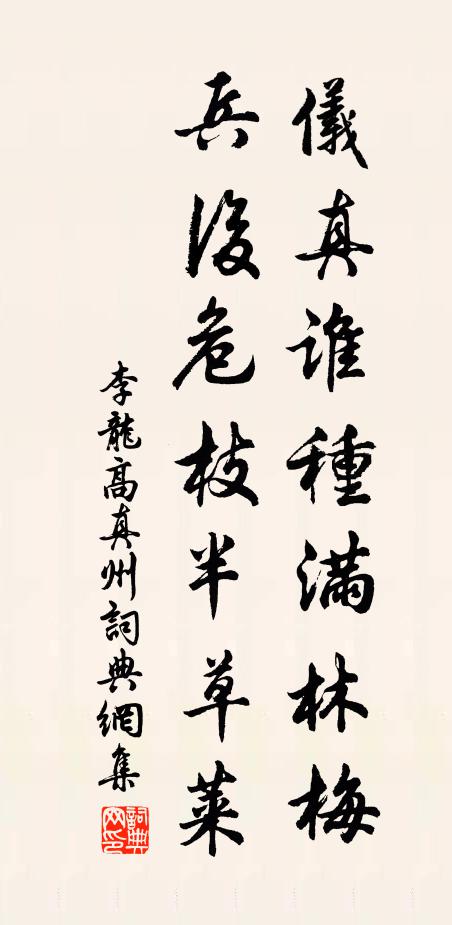 儀真誰種滿林梅
兵後危枝半草萊
李龍高真州詞典網集
詞典網印